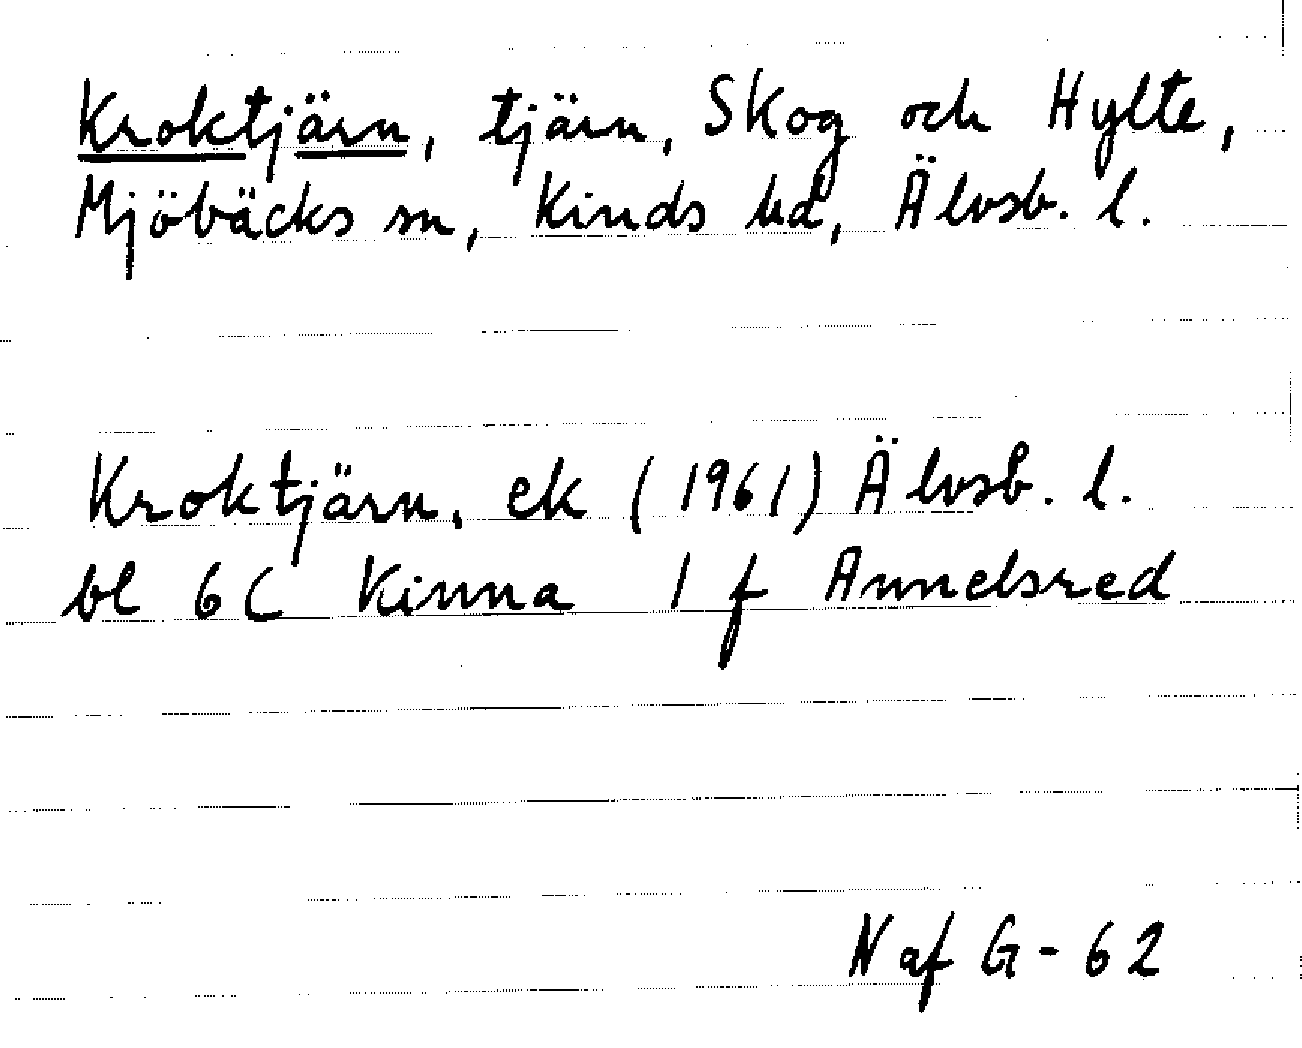 Kroktjärn, tjärn, Skog och Hylte,
Mjöbäcks sn, Kinds hd, Älvsb. l.
Kroktjärn, ek (1961) Älvsb. l.
bl 6C Kinna 1 f Annelsred
N af G-62